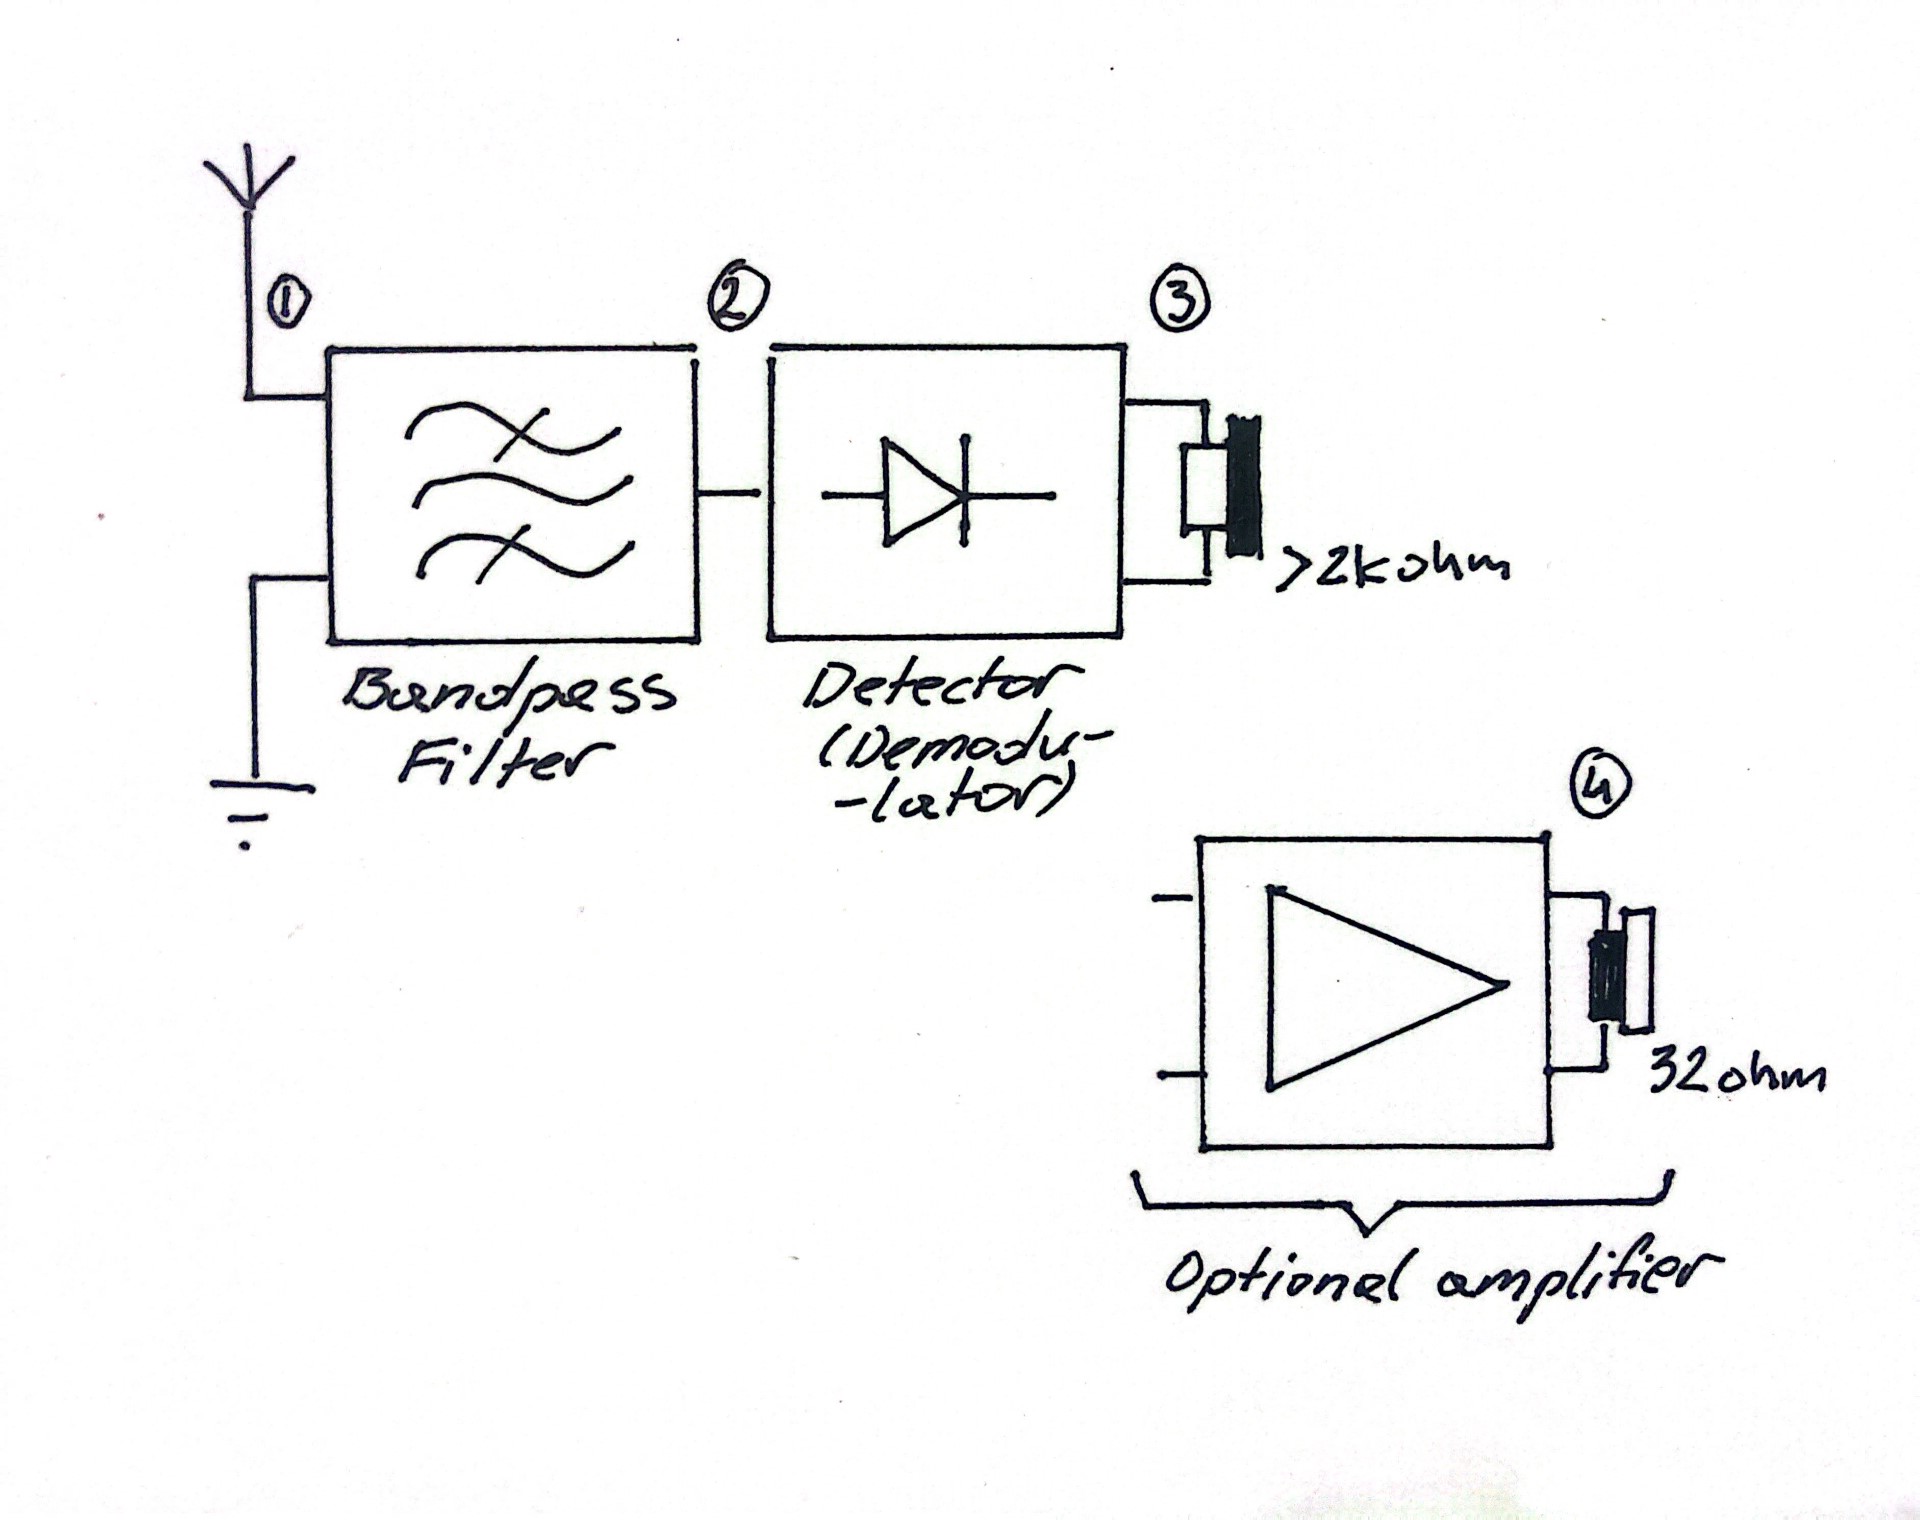 ①
②
③
>2kohm
Bandpass
Filter
Detector
(Demodu-
-lator)
④
32ohm
Optional amplifier